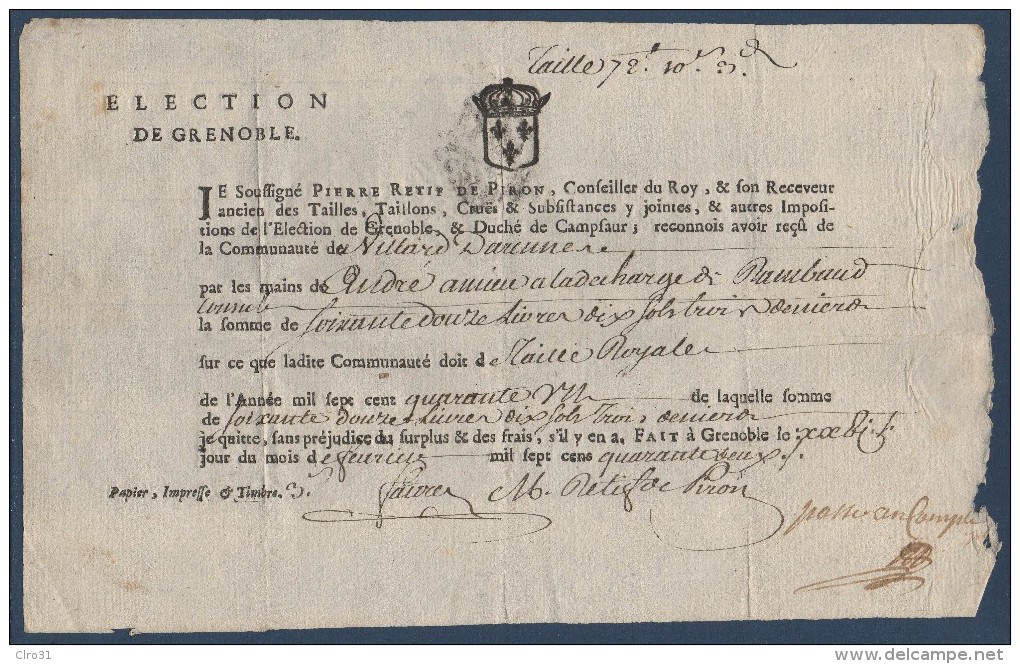 Taille 72.# 10.s 3.d
ELECTION
DE GRENOBLE.
JE Soussigné PIERRE RETIF DE PIRON, Conseiller du Roy, & son Receveur
ancien des Tailles, Taillons, Cruës & Subsistances y jointes, & autres Imposi-
tions de l'Election de Grenoble, & Duché de Campsaur; reconnois avoir reçû de
la Communauté de Villard Darenne
par les mains de André amieu a la decharge de Rambaud
Consul
la somme de soixante douze Livres dix sols trois deniers
sur ce que ladite Communauté doit de Taille Royale
de l'Année mil sept cent quarante un de laquelle somme
de soixante douze Livres dix sols trois deniers
je quitte, sans préjudice du surplus & des frais, s'il y en a. FAIT à Grenoble le
jour du mois de feurier mil sept cens quarante deux
Papier, Impresse & Timbre. 3. faure M. Retif de Piron
passé en Compte
Ciro31
www.delcampe.net